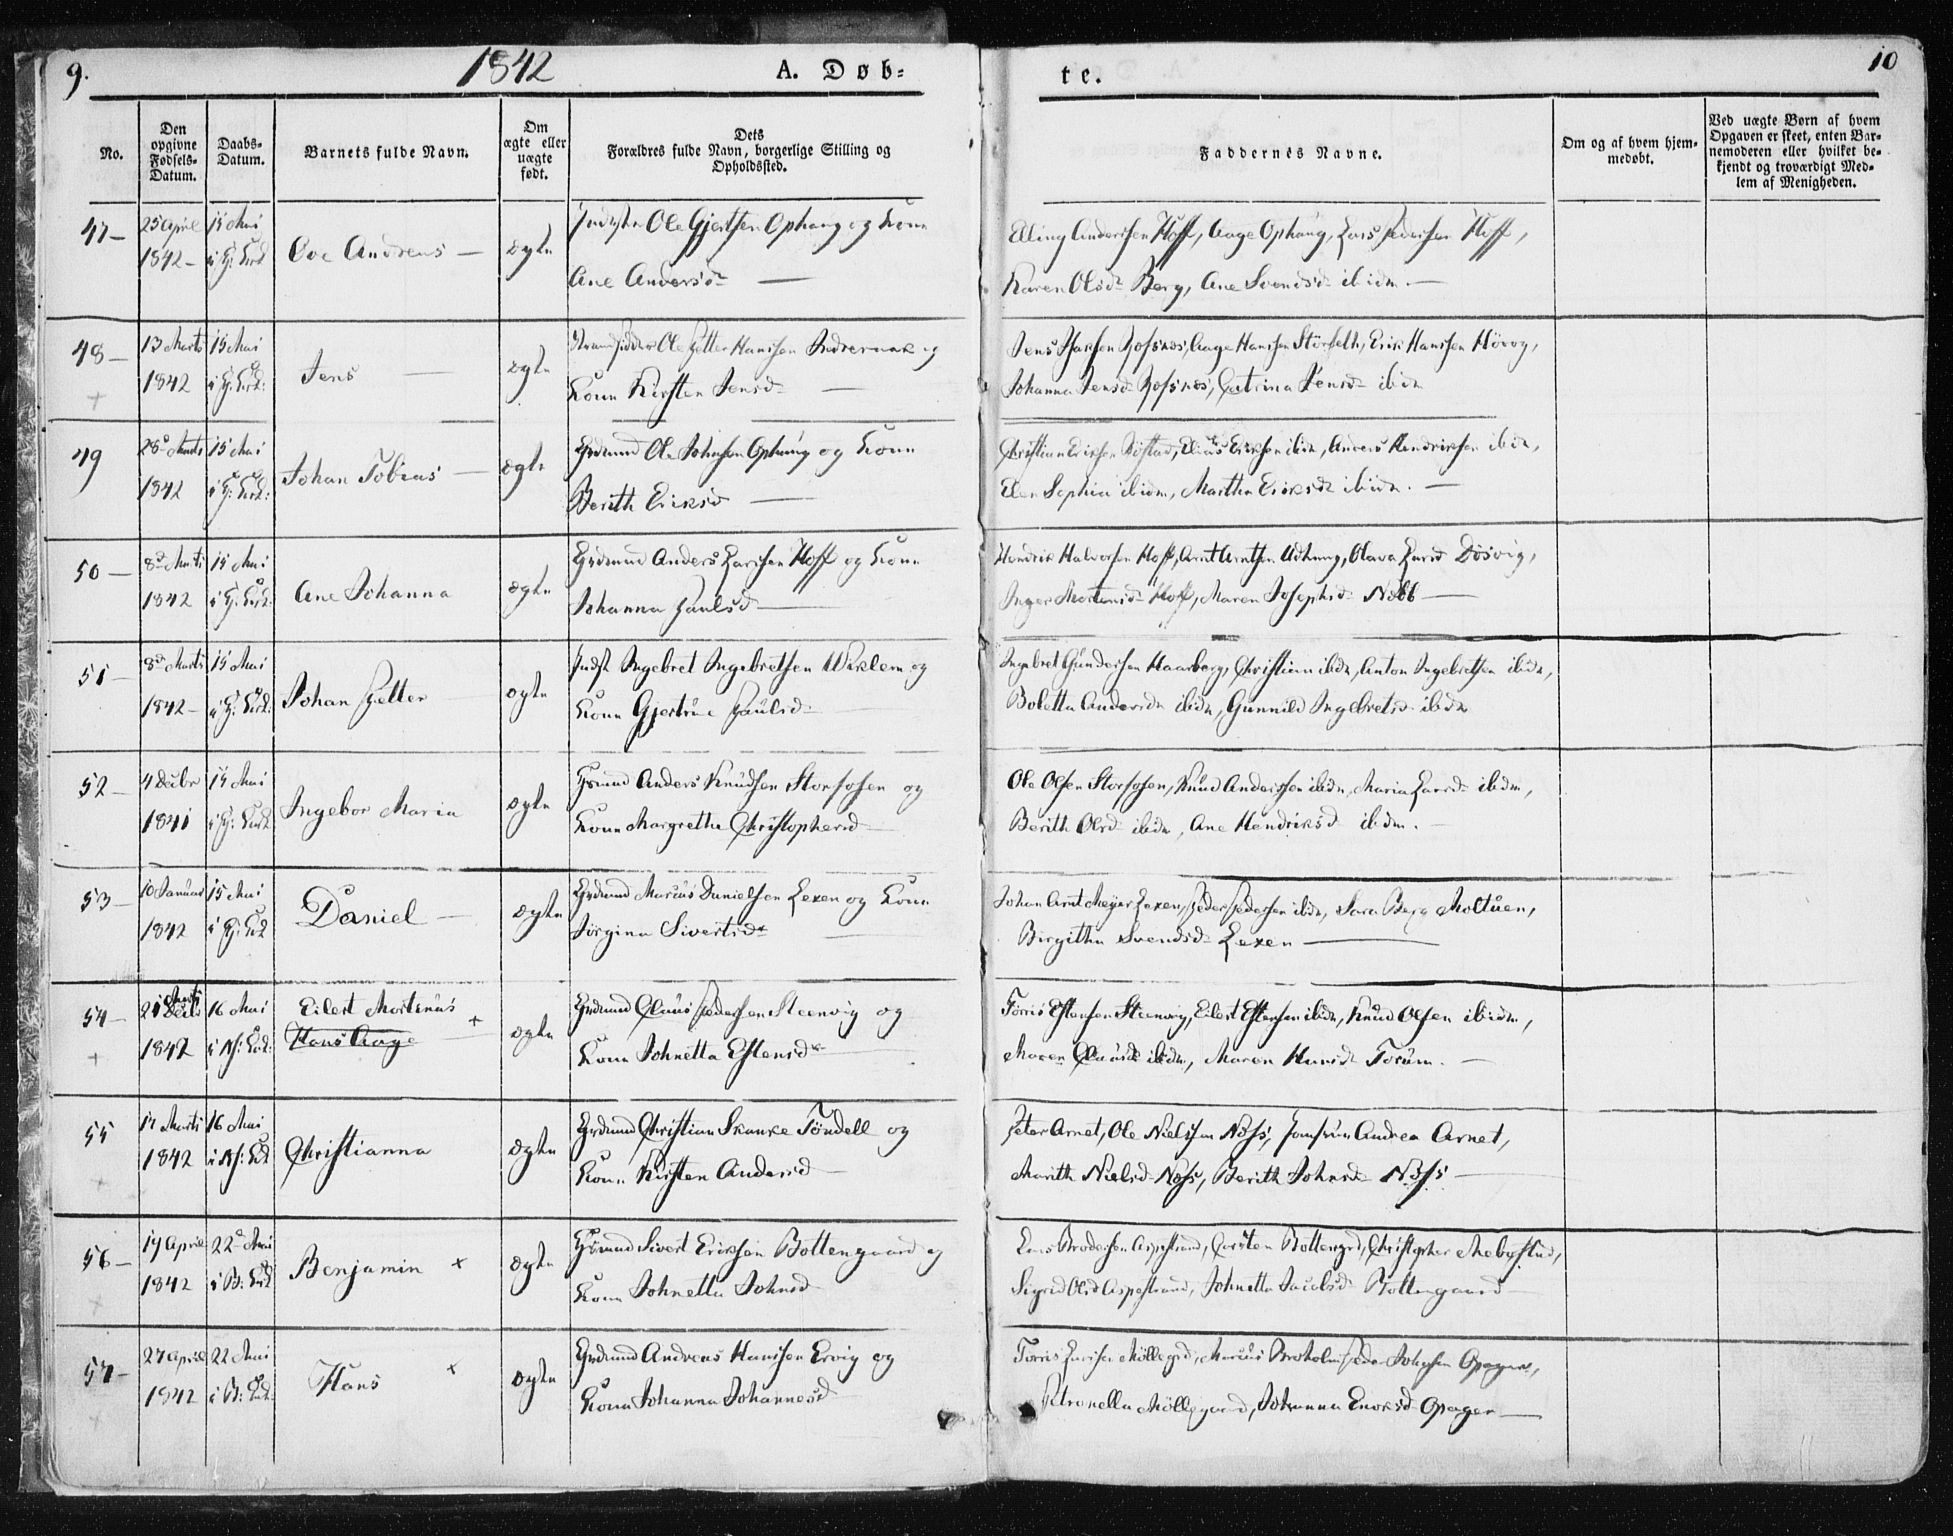 9.
1842
A. Døb-
te.
10
No.
Den opgivne Fødsels-Datum.
Daabs-Datum.
Barnets fulde Navn.
Om ægte eller uægte født.
Dets Forældres fulde Navn, borgerlige Stilling og Opholdssted.
Faddernes Navne.
Om og af hvem hjem-medøbt.
Ved uægte Børn af hvem Opgaven er skeet, enten Bar-nemoderen eller hvilket be-kjendt og troværdigt Med-lem af Menigheden.
47 – 25 April 15 Mai
1842 –
Ove Andreas – ægte
Ole Gjertsen Ophaug og Kone
Ane Andersd –
Elling Anderssen Hoff, Aage Ophaug, Lars Pedersen Hoff,
Karen Olsd Berg, Ane Svendsd ibidm –
48 – 13 Marts 15 Mai
1842
Jens – ægte
Ole Petter Hanssen og
Kone Kirsten Jensd –
Jens, Aage Hanssen Störseth, Erik Hanssen,
Johanna Jensd, Catrina Jensd ibidm
49 28 Marts 15 Mai
1842
Johan Tobias – ægte
Grdmnd Ole Johnsen Ophaug og Kone
Berith Eriksd –
Christian Eriksen, Elias Eriksen ibidm, Anders Hendriksen ibidm,
Elen Sophia ibidm, Martha Eriksd ibidm. –
50 – 8d Marts 15 Mai
1842
Ane Johanna ægte
Grdmnd Anders Larssen Hoff og Kone
Johanna Paulsd –
Hendrik Halvorsen Hoff, Arnt Arntsen Udhaug, Olava Larsd Dösvig,
Inger Mortensd Hoff, Maren Josephsd Nebb –
51 – 8d Marts 15 Mai
1842 –
Johan Petter ægte
Indst Ingebret Ingebretsen Wiklem og
Kone Gjertrue Paulsd –
Ingebret Gundersen Haarberg, Christian ibidm, Anton Ingebretsen ibidm,
Boletta Andersd ibidm, Gunnild Ingebretsd ibidm
52 – 4 Decbr 15 Mai
1841
Ingebor Maria ægte
Anders Knudsen Storfosen og
Kone Margretha Christophersd
Ole Olsen Storfosen, Knud Anderssen ibidm, Maria Larsd ibidm,
Berith Olsd ibidm, Ane Hendriksd ibidm. –
53 – 10 Januar 15 Mai
1842
Daniel – ægte
Grdmnd Marcus Danielsen Lexen og Kone
Jörgina Sivertsd
Johan Arnt Meyer Lexen, Peder Pedersen ibidm, Sara Berg Moltuen,
Birgitha Svendsd Lexen –
54 – 21 Marts 16 Mai
1842
Eilert Mortenus
Hans Aage
+ ægte
Grdmnd Claus Pedersen Steenvig og
Kone Johnetta Estensd
Torris Estensen Steenvig, Eilert Estensen ibidm, Knud Olsen ibidm,
Maren Clausd ibidm, Maren Hansd Torum. –
55 17 Marts 16 Mai
1842
Christianna ægte
Grdmnd Christian Skanke Töndell og
Kone Kirsten Andersd –
Peter Arnet, Ole Nielssen Næss, Jomfrue Andrea Arnet,
Marith Nielsd Næss, Berith Johnsd Næss –
56 – 17 April 22d Mai
1842
Benjamin x ægte
Sivert Eriksen Bottengaard og
Kone Johnetta Johnsd
Lars Brodersen, Carsten Bottengrd, Christopher,
Sigrid Olsd, Johnetta Jacobsd Bottengaard
57 – 27 April 22 Mai
1842
Hans x ægte
Grdmnd Andreas Hanssen Ervig og
Kone Johanna Johannesd
Torris Larsen Möllegrd, Marcus Broholm, Peder Johnsen Opager,
Petronella Möllegaard, Johanna Enoksd Opager –